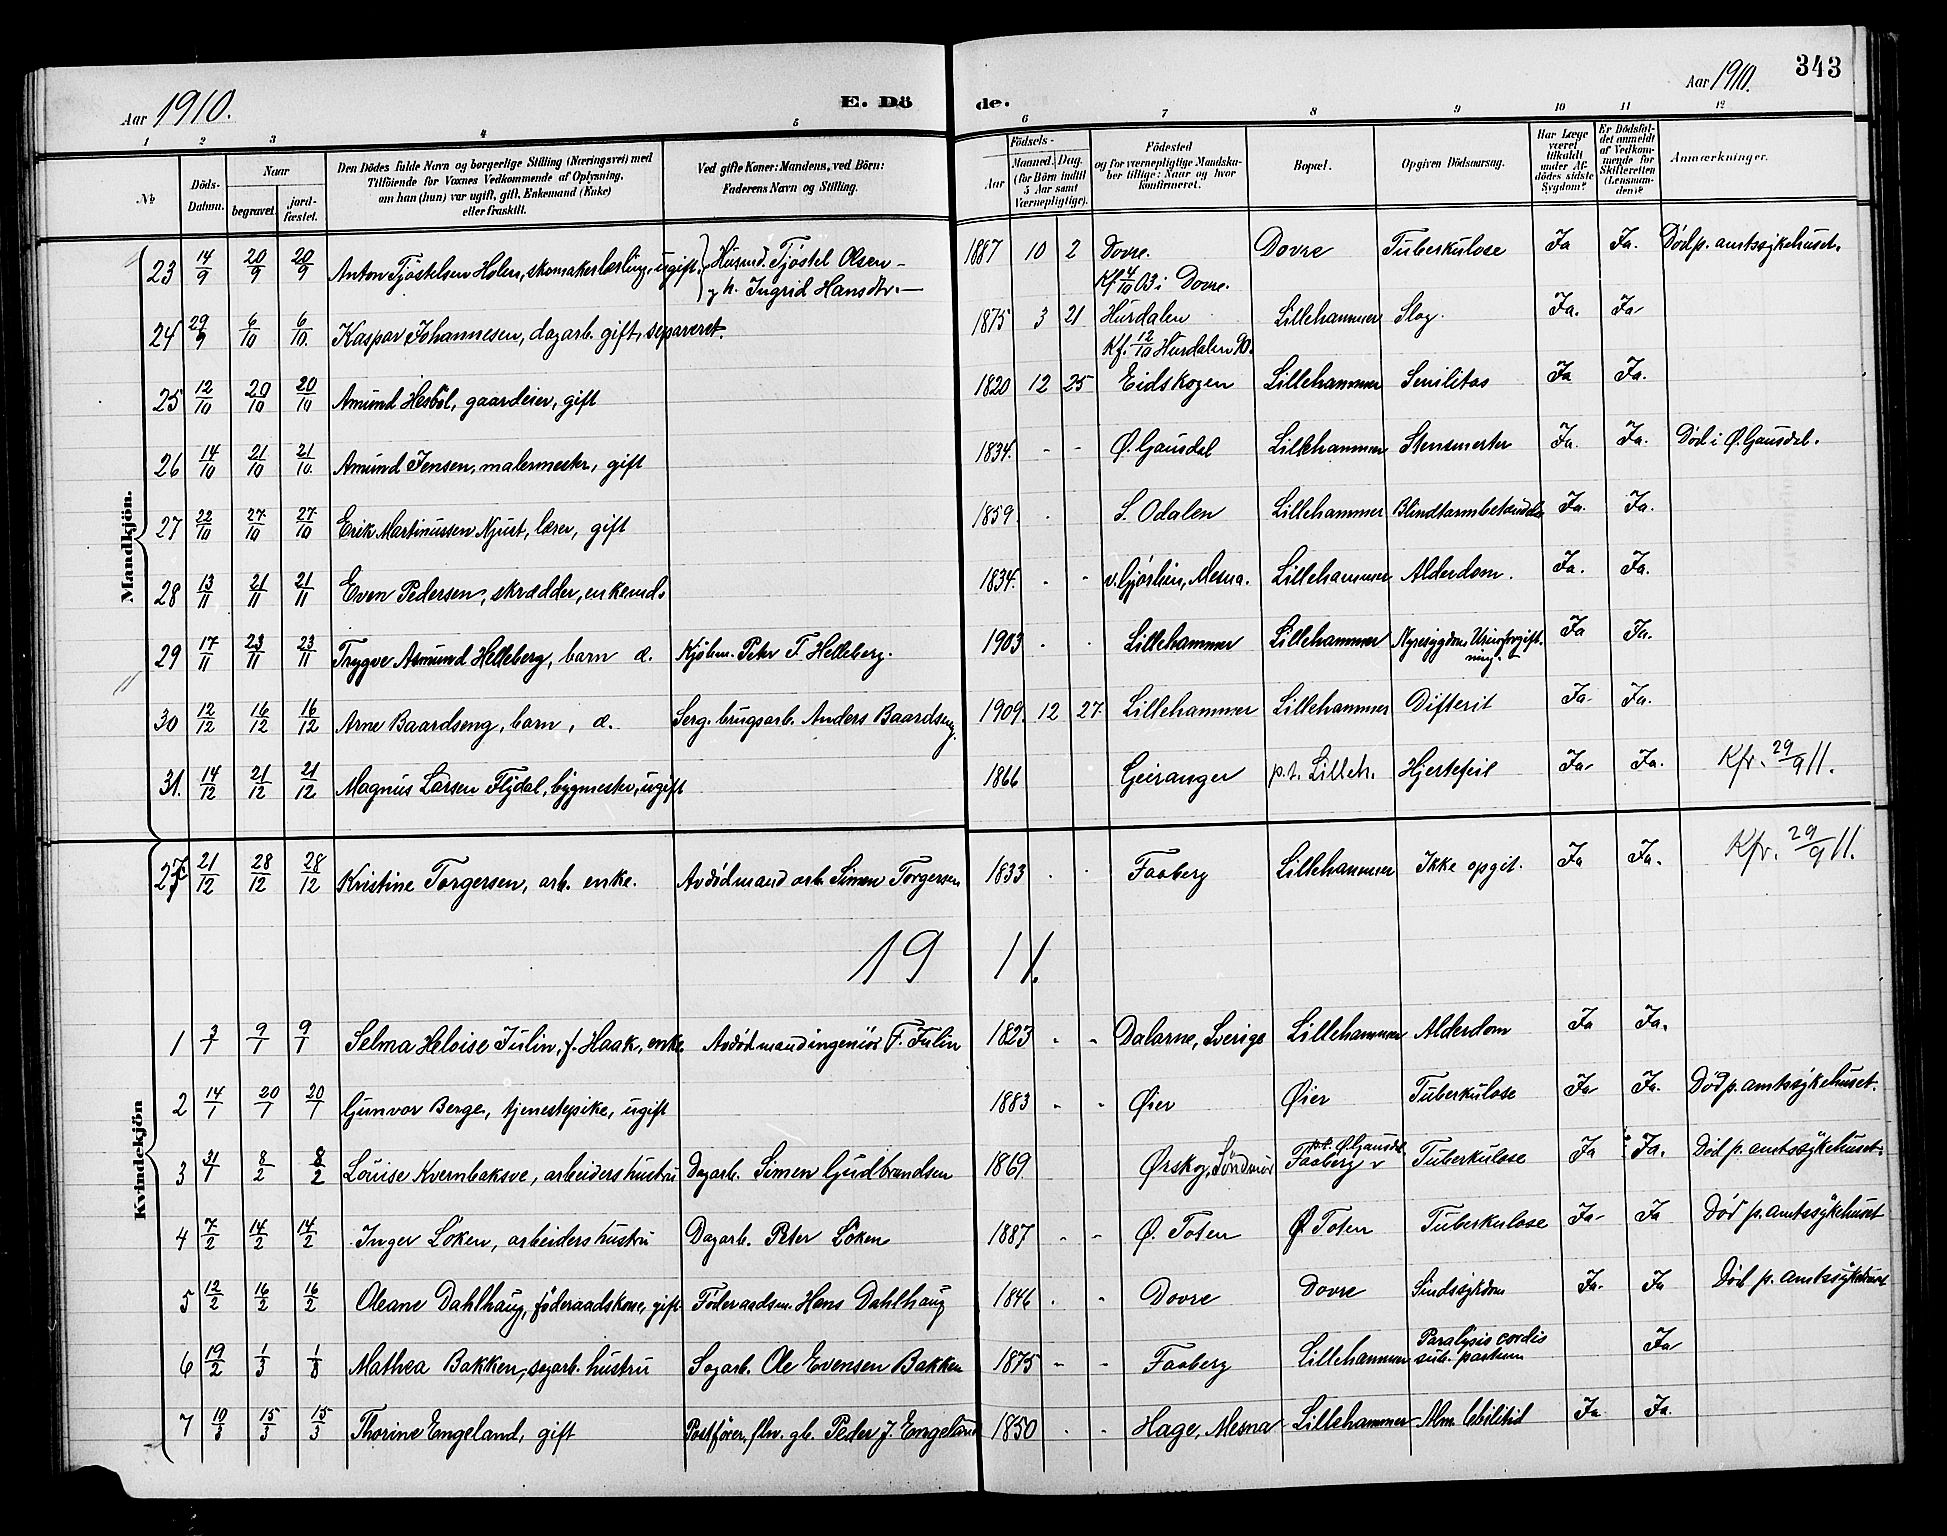 Aar 1910. E. Dö de. Aar 1910. 343
1 2 3 4 5 6 7 8 9 10 11 12
№ Döds-Datum. Naar begravet. jordfæstet. Den Dödes fulde Navn og borgerlige Stilling (Næringsvei) med Tilföiende for Voxnes Vedkommende af Oplysning, om han (hun) var ugift, gift, Enkemand (Enke) eller fraskilt. Ved gifte Koner: Mandens, ved Börn: Faderens Navn og Stilling. Födsels- Aar Maaned. Dag. (for Börn indtil 5 Aar samt Værnepligtige). Födested og for værnepligtige Mandskaber tillige: Naar og hvor konfirmeret. Bopæl. Opgiven Dödsaarsag. Har Læge været tilkaldt under Afdödes sidste Sygdom? Er Dödsfaldet anmeldt af Vedkommende for Skifteretten (Lensmanden)? Anmærkninger.
Mandkjön.
23 14/9 20/9 20/9 Anton Tjöstelsen Holen, skomakerlærling, ugift. Husmd. Tjöstel Olsen - 1887 10 2 Dovre. Dovre Tuberkulose Ja Ja. Död p. amtssykehuset.
g. h. Ingrid Hansdtr. — Kf 4/10 03 i Dovre.
24 29/9 6/10 6/10. Kaspar Johannesen, dagarb. gift, separeret. 1875 3 21 Hurdalen Lillehammer Slag. Ja. Ja
Kf. 12/10 Hurdalen 90.
25 12/10 20/10 20/10 Amund Hesböl, gaardeier, gift 1820 12 25 Eidskogen Lillehammer Senilitas Ja Ja.
26 14/10 21/10 21/10. Amund Jensen, malermester, gift 1834. - - Ø. Gausdal Lillehammer Stensmerter Ja. Ja. Död i Ø. Gausdal.
27 22/10 27/10 27/10 Erik Martinussen Njust, lærer, gift 1859. . S. Odalen Lillehammer Ja. Ja.
28 13/11 21/11 21/11 Even Pedersen, skrædder, enkemd. 1834. . - Lillehammer Alderdom. Ja. Ja.
29 17/11 23/11 23/11 Trygve Asmund Helleberg, barn æ. Kjöbm. Peter F. Helleberg. 1903 . . Lillehammer Lillehammer Nyresygdom Urinforgift-
ning. Ja Ja.
30 12/12 16/12 16/12 Arne Baardseng, barn, æ. Serg. brugsarb. Anders Baardseng. 1909. 12 27 Lillehammer Lillehammer Difterit Ja Ja.
31. 14/12 21/12 21/12 Magnus Larsen Flydal, bygmester, ugift 1866 Geiranger p.t. Lilleh. Hjertefeil Ja Ja. Kfr. 29/9 11.
27 21/12 28/12 28/12 Kristine Torgersen, arb. enke. Avdöd mand arb. Simen Torgersen 1833 . . Faaberg Lillehammer Ikke opgit. Ja Ja. Kfr. 29/9 11.
19 11.
Kvindekjön
1 3/1 9/1 9/1 Selma Heloise Julin, f. Haak, enke Avdöd mand ingeniör F. Julin 1823 . - Dalarne, Sverige Lillehammer Alderdom Ja Ja.
2 14/1 20/1 20/1 Gunvor Berge, tjenestepike, ugift 1883 - - Øier Øier Tuberkulose Ja Ja. Död p. amtssykehuset.
3 31/1 8/2 8/2 Louise Kvernbaksve, arbeiders hustru Dagarb. Simen Gudbrandsen 1869. Ørskog, Söndmör p.t. Ø Gausdal
Faaberg Tuberkulose Ja Ja. Död p. amtssykehuset.
4 7/2 14/2 14/2 Inger Löken, arbeiders hustru Dagarb. Peter Löken 1887 - - Ø. Toten Ø Toten Tuberkulose Ja Ja Död p. amtssykehuset
5 12/2 16/2 16/2 Oleane Dahlhaug, föderaadskone, gift Föderaadsm. Hans Dahlhaug 1846 . . Dovre Dovre Sindssykdom Ja. Ja Död p. amtssykehuset
6 19/2 1/3 1/3 Mathea Bakken, sagarb. hustru Sagarb. Ole Evensen Bakken 1875 - - Faaberg Lillehammer Paralysis cordis
sub. partum Ja
7 10/3 15/3 15/3 Thorine Engeland, gift Peder J. Engeland 1850 . . Hage, Mesna Lillehammer Alm. debilitet Ja Ja.